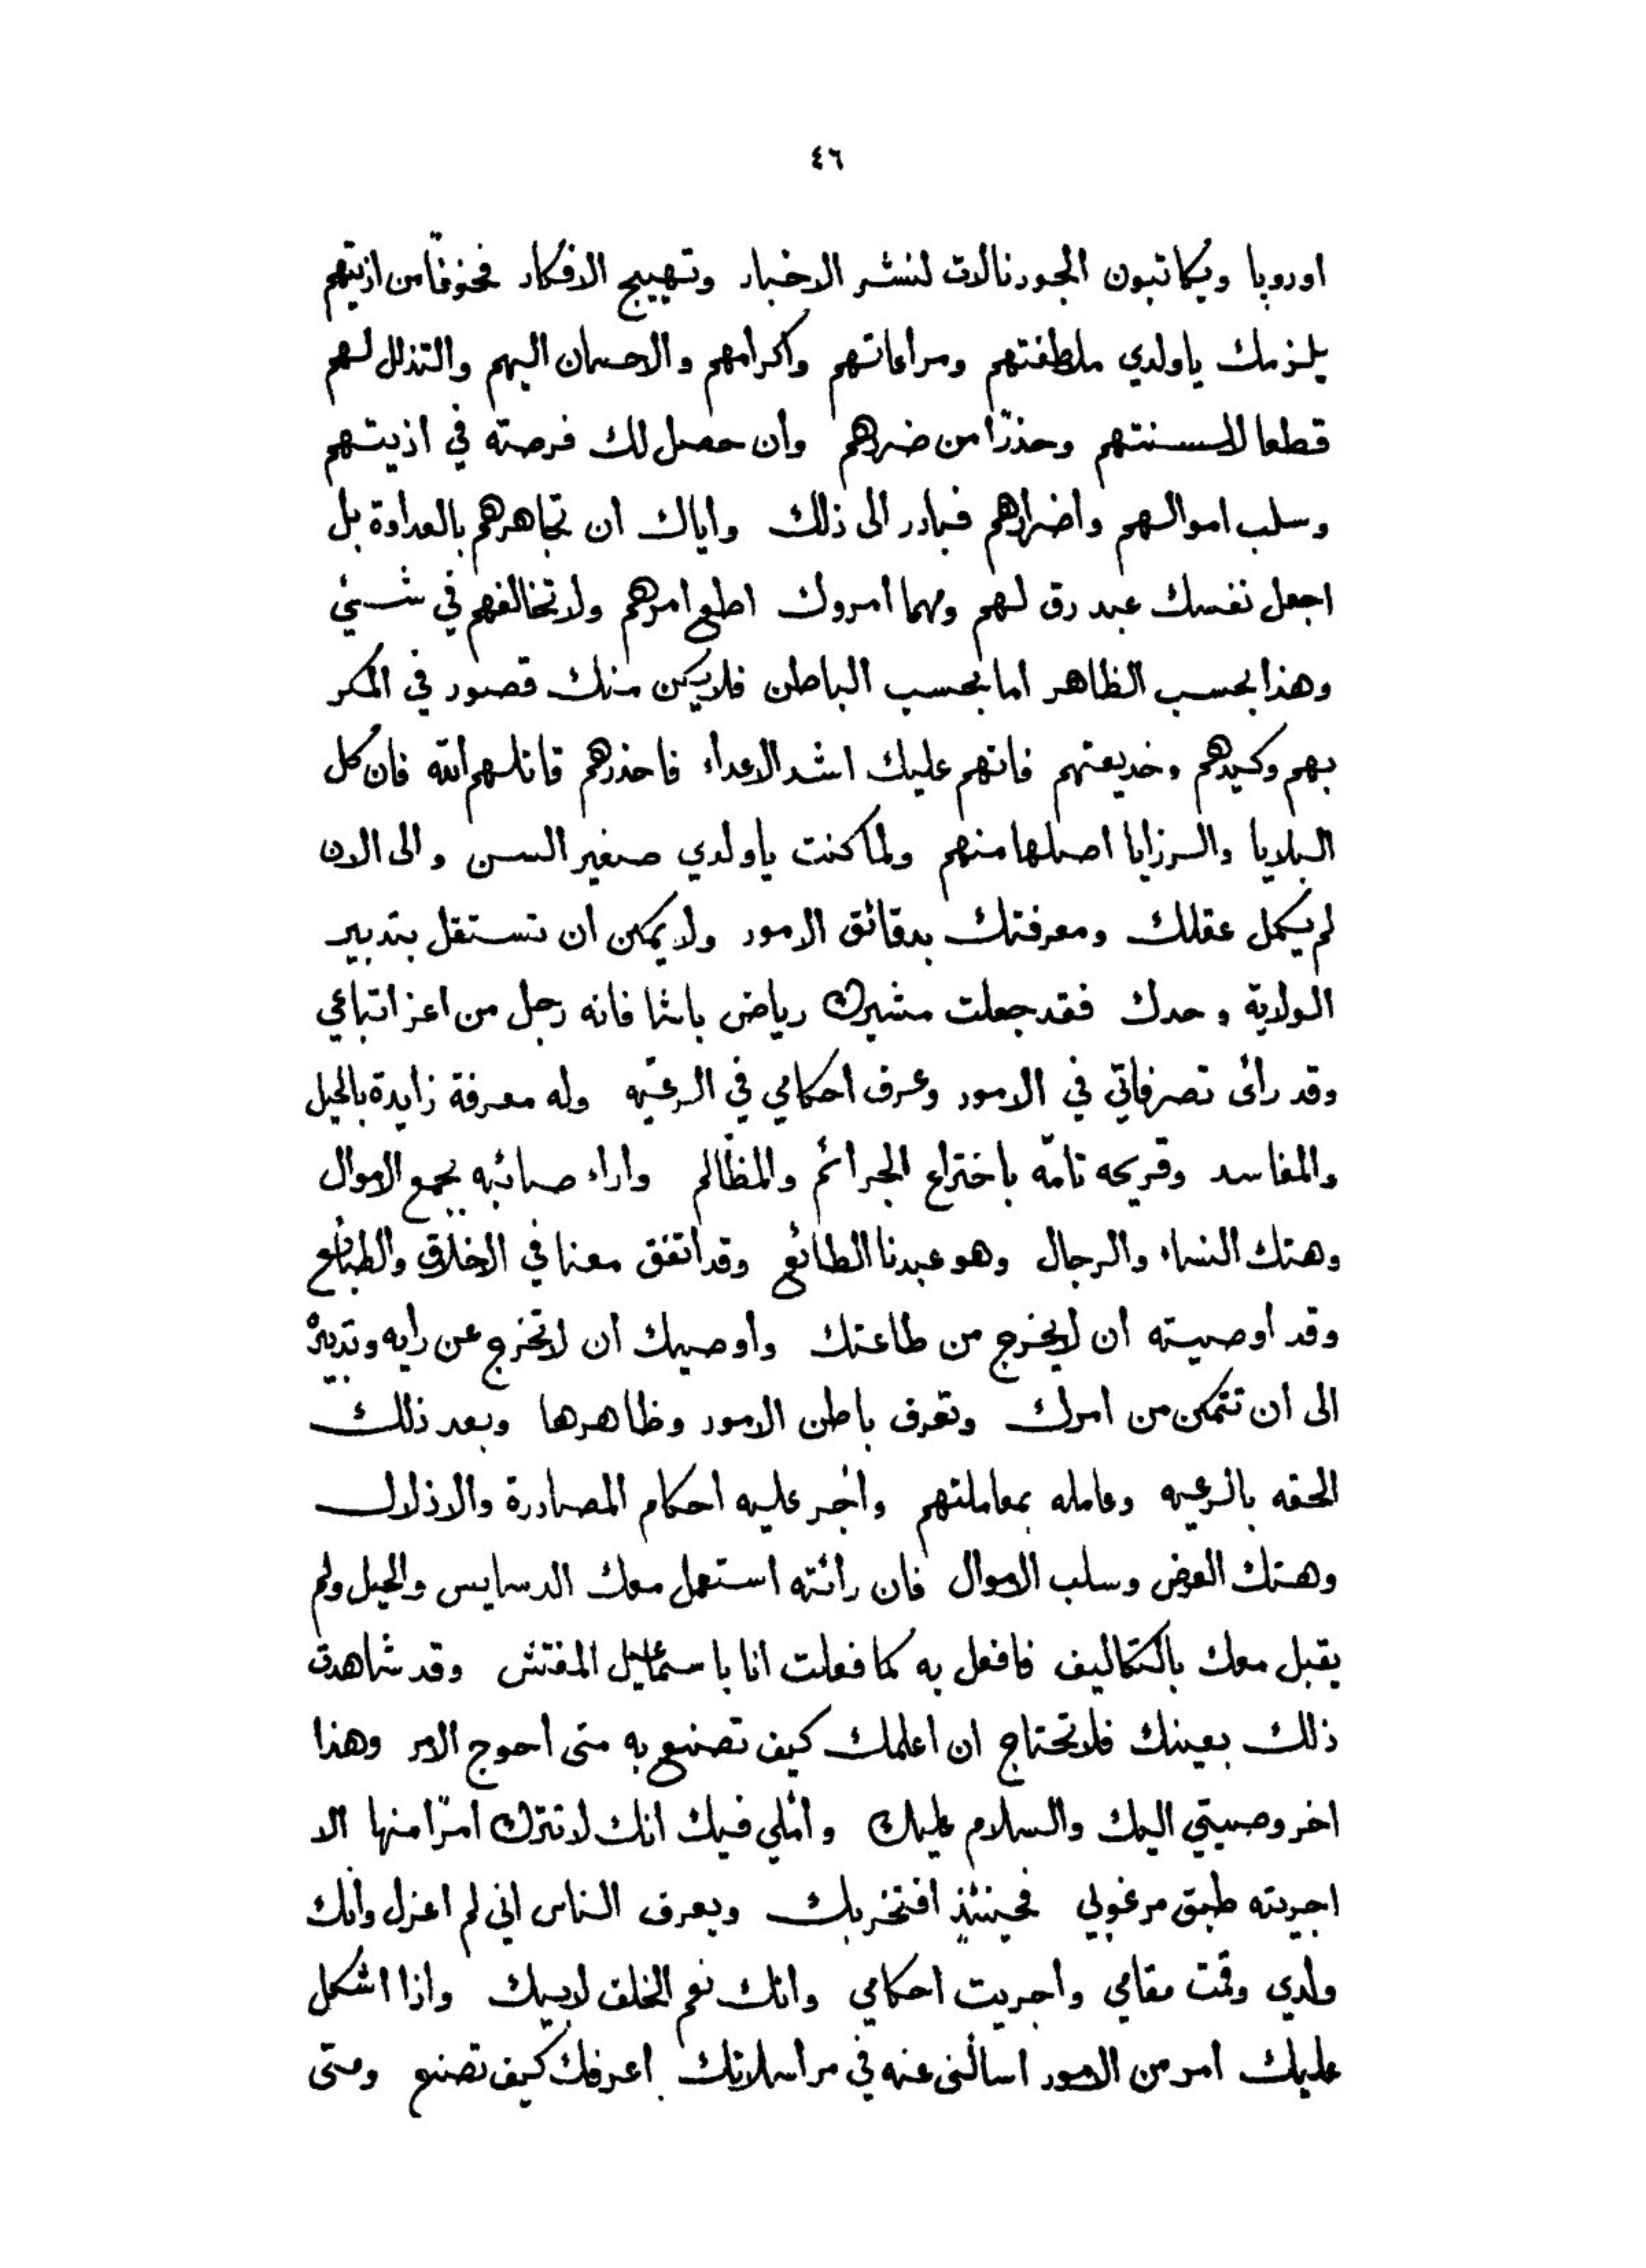 ٤٦
اوروپا ويكاتبون الجورنالات لنشر الاخبار وتهييج الافكار فخوفًا من اذيتهم
يلزمك ياولدي ملاطفتهم ومراعاتهم واكرامهم والاحسان اليهم والتذلل لهم
قطعا لالسنتهم وحذرًا من ضررهم وان حصل لك فرصته في اذيتهم
وسلب اموالهم واضرارهم فبادر الى ذلك واياك ان تجاهرهم بالعداوة بل
اجعل نفسك عبد رق لهم ومهما امروك اطع امرهم ولا تخالفهم في شيئ
وهذا بحسب الظاهر اما بحسب الباطن فلا يكن منك قصور في المكر
بهم وكيدهم وخديعتهم فانهم عليك اشد الاعداء فاحذرهم قاتلهم الله فان كل
البلايا والرزايا اصلها منهم ولما كنت ياولدي صغير السن والى الان
لم يكمل عقلك ومعرفتك بدقائق الامور ولا يمكن ان تستقل بتدبير
الولاية وحدك فقد جعلت مشيرك رياض باشا فانه رجل من اعز اتباعي
وقد رائ تصرفاتي في الامور وعرف احكامي في الرعيّه وله معرفة زايدة بالحيل
والمفاسد وقريحه تامّه باختراع الجرائم والمظالم واراء صائبه بجمع الاموال
وهتك النساء والرجال وهو عبدنا الطائع وقد اتفق معنا في الاخلاق والطبائع
وقد اوصيته ان لا يخرج من طاعتك وأوصيك أن لا تخرج عن رايه وتدبيره
الى ان تتمكن من امرك وتعرف باطن الامور وظاهرها وبعد ذلك
الحقه بالرعيه وعامله بمعاملتهم وأجر عليه احكام المصادرة والاذلال
وهتك العرض وسلب الاموال فان رائته استعمل معك الدسايس والحيل ولم
يقبل معك بالتكاليف فافعل به كما فعلت انا باسماعيل المفتش وقد شاهدت
ذلك بعينك فلا تحتاج ان اعلمك كيف تصنع به متى احوج الامر وهذا
اخر وصيتي اليك والسلام عليك وأملي فيك انك لا تترك امرًا منها الا
اجريته طبق مرغوبي فحينئذٍ افتخر بك ويعرف الناس اني لم اعزل وانك
ولدي وقمت مقامي واجريت احكامي وانك نعم الخلف لابيك واذا اشكل
عليك امر من الامور اسألنى عنه في مراسلاتك اعرفك كيف تصنع ومتى